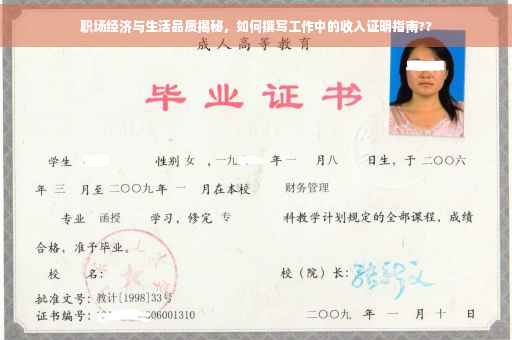 职场经济与生活品质揭秘，如何撰写工作中的收入证明指南??
成人高等教育
毕业证书
学生 性别 女 ，一九 年 一 月八 日生，于 二〇〇六
年 三 月至 二〇〇九 年 一 月在本校 财务管理
专业 函授 学习，修完 专 科教学计划规定的全部课程，成绩
合格，准予毕业。
校 名： 校（院）长：
批准文号：教计[1998]33号
证书编号： 06001310 二〇〇九 年 一 月 十 日